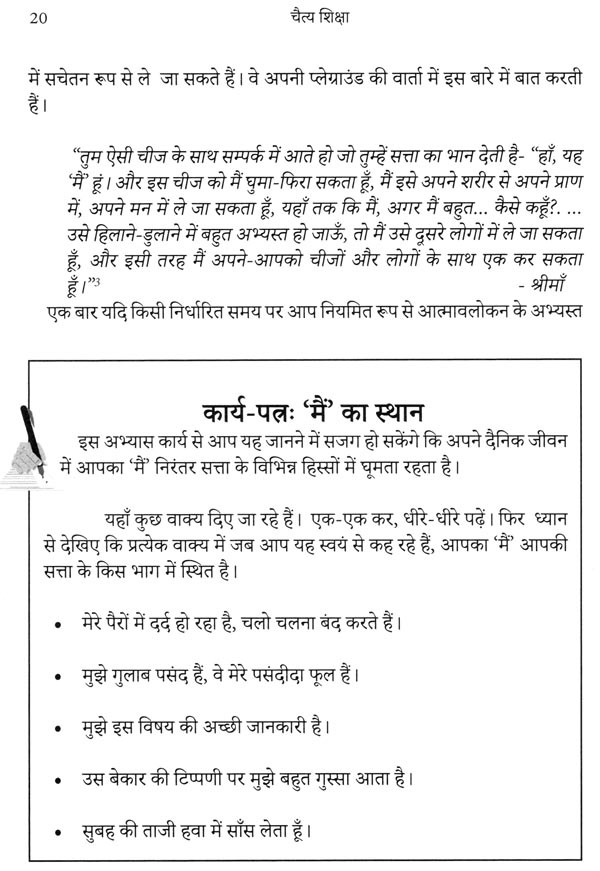 20
चैत्य शिक्षा
में सचेतन रूप से ले जा सकते हैं। वे अपनी प्लेग्राउंड की वार्ता में इस बारे में बात करती
हैं।
“तुम ऐसी चीज के साथ सम्पर्क में आते हो जो तुम्हें सत्ता का भान देती है- “हाँ, यह
‘मैं’ हूं। और इस चीज को मैं घुमा-फिरा सकता हूँ, मैं इसे अपने शरीर से अपने प्राण
में, अपने मन में ले जा सकता हूँ, यहाँ तक कि मैं, अगर मैं बहुत... कैसे कहूँ?. ...
उसे हिलाने-डुलाने में बहुत अभ्यस्त हो जाऊँ, तो मैं उसे दूसरे लोगों में ले जा सकता
हूँ, और इसी तरह मैं अपने-आपको चीजों और लोगों के साथ एक कर सकता
हूँ।”3 - श्रीमाँ
एक बार यदि किसी निर्धारित समय पर आप नियमित रूप से आत्मावलोकन के अभ्यस्त
कार्य-पत्रः ‘मैं’ का स्थान
इस अभ्यास कार्य से आप यह जानने में सजग हो सकेंगे कि अपने दैनिक जीवन
में आपका ‘मैं’ निरंतर सत्ता के विभिन्न हिस्सों में घूमता रहता है।
यहाँ कुछ वाक्य दिए जा रहे हैं। एक-एक कर, धीरे-धीरे पढ़ें। फिर ध्यान
से देखिए कि प्रत्येक वाक्य में जब आप यह स्वयं से कह रहे हैं, आपका ‘मैं’ आपकी
सत्ता के किस भाग में स्थित है।
• मेरे पैरों में दर्द हो रहा है, चलो चलना बंद करते हैं।
• मुझे गुलाब पसंद हैं, वे मेरे पसंदीदा फूल हैं।
• मुझे इस विषय की अच्छी जानकारी है।
• उस बेकार की टिप्पणी पर मुझे बहुत गुस्सा आता है।
• सुबह की ताजी हवा में साँस लेता हूँ।